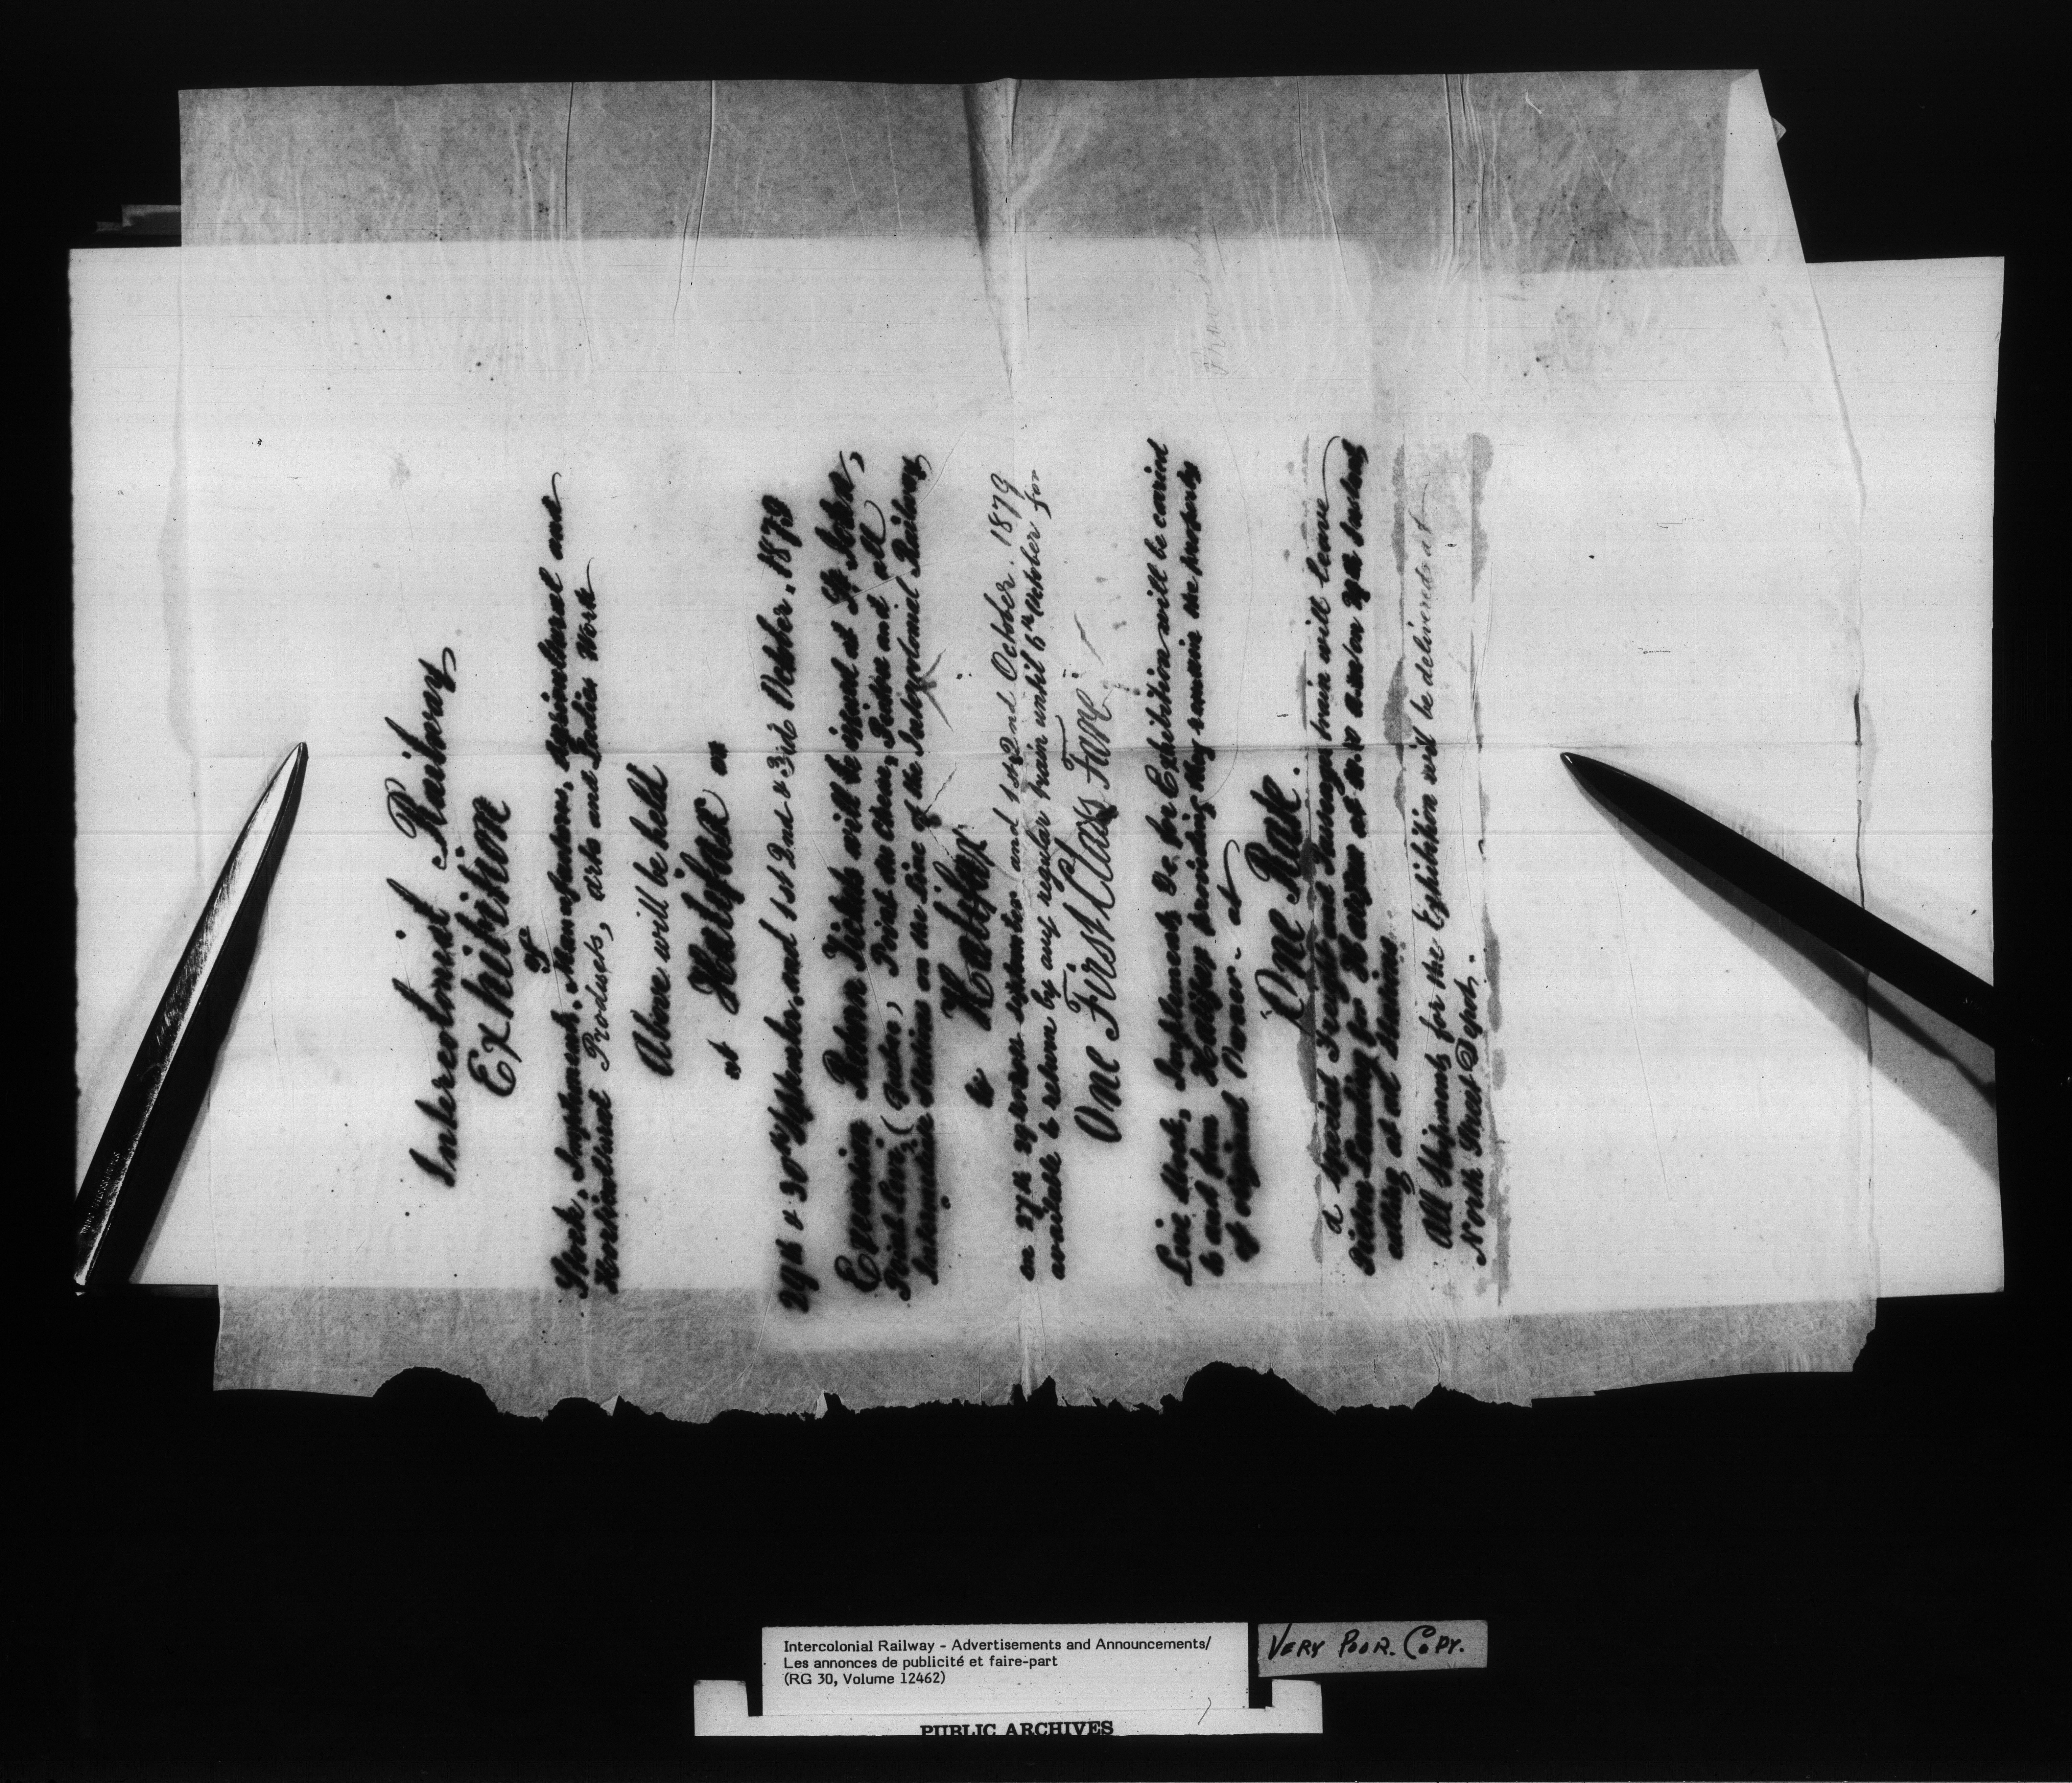 Intercolonial Railway
Exhibition
of
Stock, Implements, Manufactures, Agricultural and
Horticultural Products, Arts and Ladies Work
Above will be held
at Halifax on
29th & 30th September, and 1st 2nd & 3rd October, 1879
Excursion Return Tickets will be issued at St John,
Point Levi, Point du Chene, Pictou and all
Intermediate Stations on the line of the Intercolonial Railway
to Halifax
on 27th 29th September and 1st 2nd October, 1879
available to return by any regular train until 6th October for
One First Class Fare
Live Stock, Implements &c. for Exhibition will be carried
to and from Halifax providing they remain the property
of original Owner - at
"One Rate.
A Special Freight and Passenger train will leave
Pictou Landing for Halifax at on 27th instant
calling at all Stations
All Shipments for the Exhibition will be delivered at
North Street Depot.
Intercolonial Railway - Advertisements and Announcements/
Les annonces de publicité et faire-part
(RG 30, Volume 12462)
VERY POOR. COPY.
PUBLIC ARCHIVES